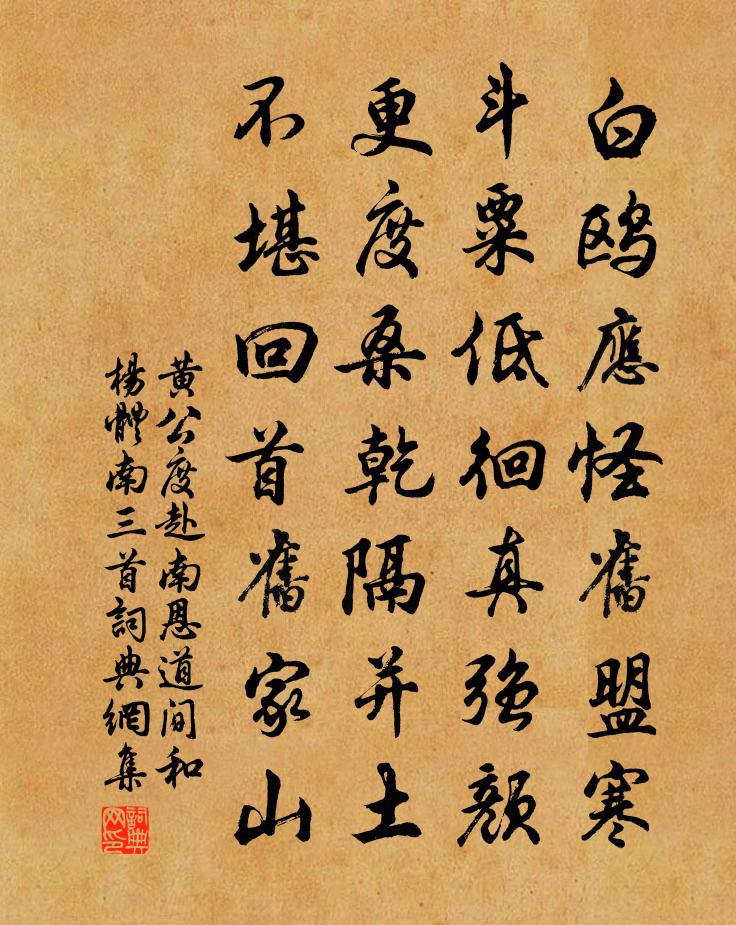 白鷗應怪舊盟寒
斗粟低徊真強顔
更度桑乾隔并土
不堪回首舊家山
黄公度赴南恩道间和
楊體南三首詞典網集
詞典网印